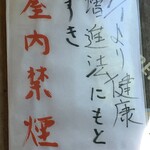 より健康
増進法にもと
ずき
屋内禁煙